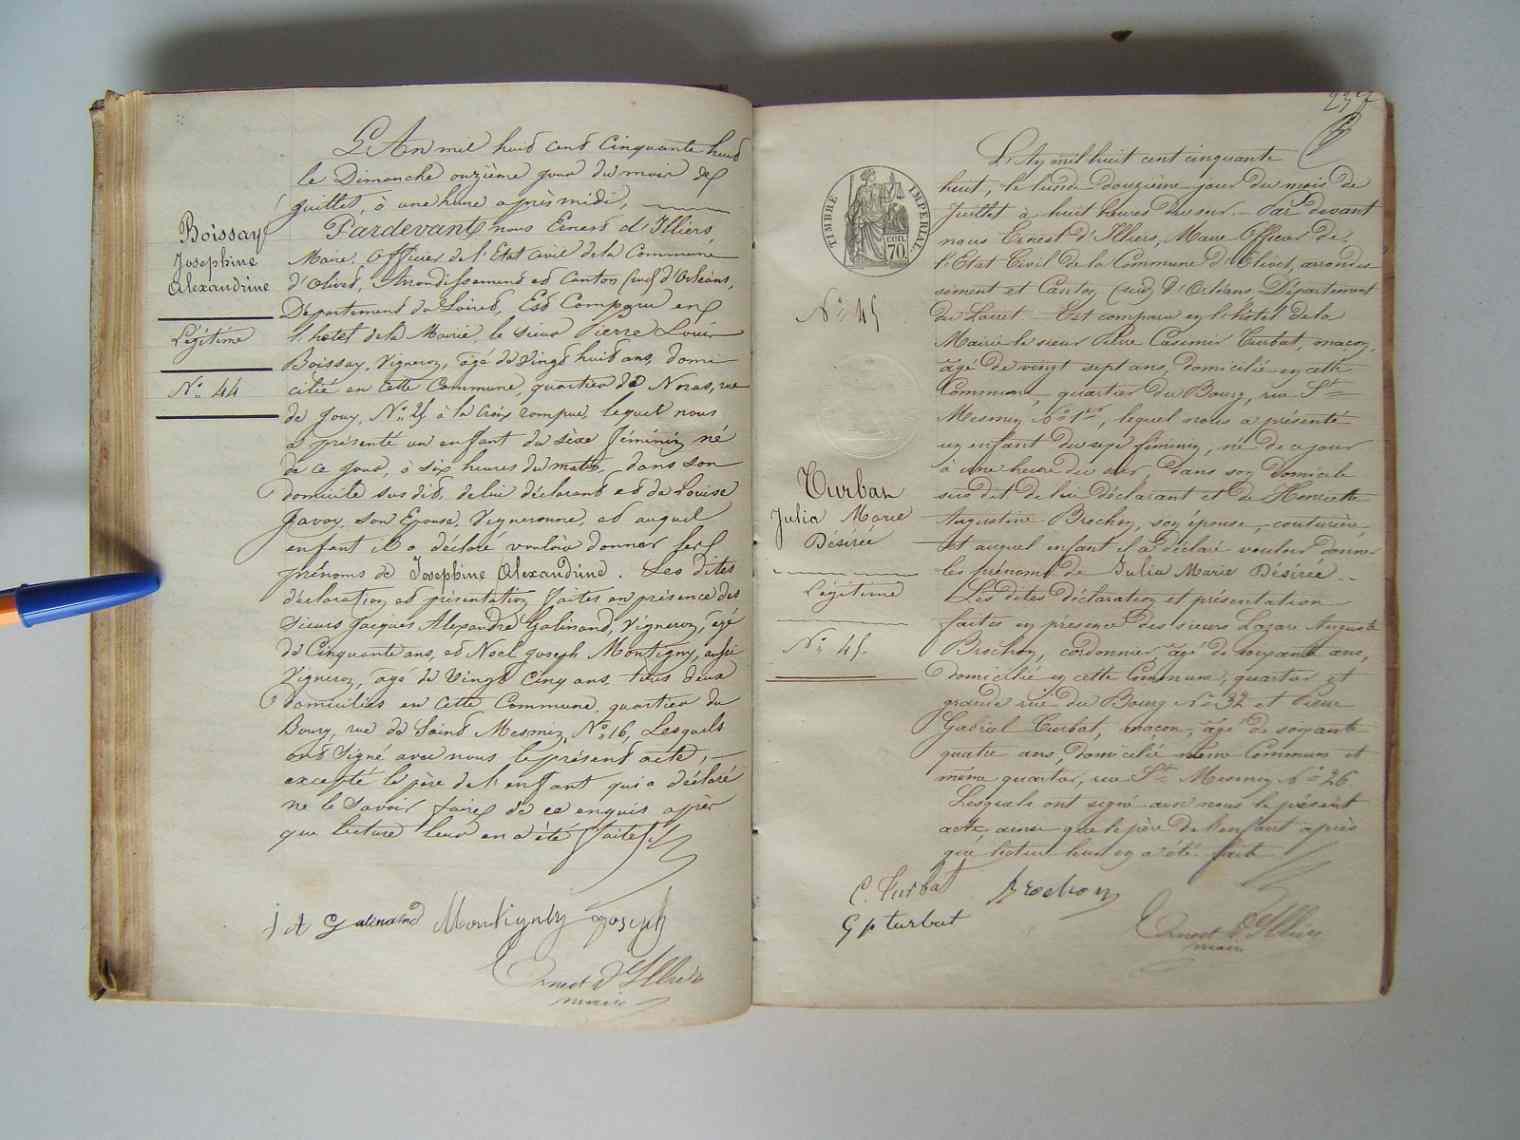 Boissay
Josephine
Alexandrine
Légitime
No. 44
L'An mil huit cent Cinquante huit
le Dimanche onzième jour du mois de
Juillet, à une heure après midi,
Pardevant nous Ernest d'Illiers
Maire, Officier de l'Etat Civil de la Commune
d'Olivet, Arrondissement et Canton (sud) d'Orléans,
Département du Loiret, Est Comparu en
l'hôtel de la Mairie, le sieur Pierre Louis
Boissay, Vigneron, âgé de vingt huit ans, domi
cilié en cette Commune, quartier de Noras, rue
de Jouy, No. 25 à la Croix rompue, lequel nous
a présenté un enfant du sèxe féminin né
de ce jour, à six heures du matin, dans son
domicile sus dit, de lui déclarant et de Louise
Javoy, son Epouse, Vigneronne, et auquel
enfant il a déclaré vouloir donner les
prénoms de Josephine Alexandrine. Les dites
déclaration et présentation faites en présence des
Sieurs Jacques Alexandre Galinand, Vigneron, âgé
de Cinquante ans, et Noel Joseph Montigny, aussi
Vigneron, âgé de Vingt Cinq ans, tous deux
domiciliés en cette Commune, quartier du
Bourg, rue de Saint Mesmin, No. 16, Lesquels
ont Signé avec nous le présent acte,
excepté le père de l'enfant qui a déclaré
ne le Savoir faire de ce enquis après
que lecture leur en a été faite.
j A Galinand Montigny joseph
Ernest d'Illiers
maire
237
TIMBRE IMPERIAL
70
No. 45
Turbat
Julia Marie
Désirée
Légitime
No. 45.
L'An mil huit cent cinquante
huit, le lundi douzième jour du mois de
Juillet à huit heures du soir. Par devant
nous Ernest d'Illiers, Maire Officier de
l'Etat Civil de la Commune d'Olivet, arrondis
sement et Canton (sud) d'Orléans, Département
du Loiret. Est comparu en l'hôtel de la
Mairie le sieur Pierre Casimir Turbat, maçon,
âgé de vingt sept ans, domicilié en cette
Commune, quartier du Bourg, rue St
Mesmin No. 1er, lequel nous a présenté
un enfant du sexe féminin, né de ce jour
à une heure du soir dans son domicile
sus dit de lui déclarant et de Henriette
Augustine Brochon, son épouse, couturière
et auquel enfant il a déclaré vouloir donner
les prénoms de Julia Marie Désirée
Les dites déclaration et présentation
faites en présence des sieurs Lazare Auguste
Brochon, cordonnier âgé de soixante ans,
domicilié en cette Commune, quartier et
grande rue du Bourg No. 32 et Pierre
Gabriel Turbat, maçon, âgé de soixante
quatre ans, domicilié même Commune et
même quartier, rue St Mesmin No. 26
Lesquels ont signé avec nous le présent
acte, ainsi que le père de l'enfant après
que lecture leur en a été faite
C. Turbat Brochon
G p turbat
Ernest d'Illiers
maire